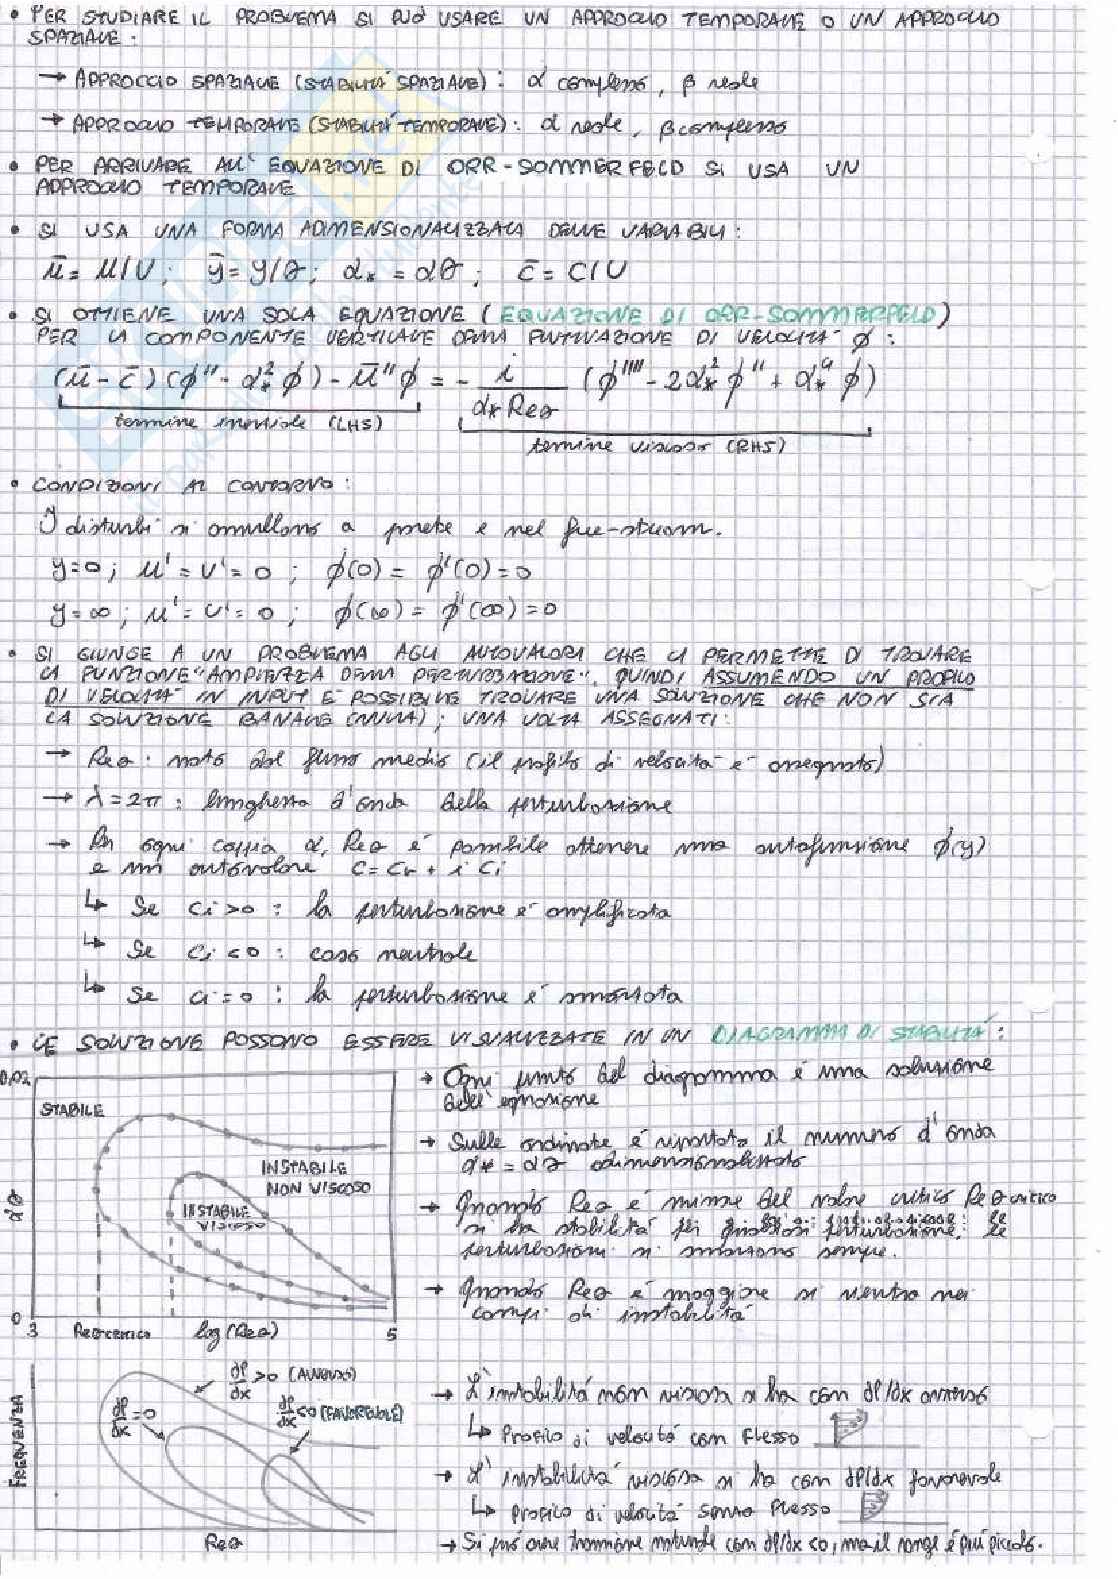 • PER STUDIARE IL PROBLEMA SI PUÒ USARE UN APPROCCIO TEMPORALE O UN APPROCCIO
SPAZIALE:
→ APPROCCIO SPAZIALE (STABILITÀ SPAZIALE): α complesso, β reale
→ APPROCCIO TEMPORALE (STABILITÀ TEMPORALE): α reale, β complesso
• PER ARRIVARE ALL'EQUAZIONE DI ORR-SOMMERFELD SI USA UN
APPROCCIO TEMPORALE
• SI USA UNA FORMA ADIMENSIONALIZZATA DELLE VARIABILI:
ū = u/U; ȳ = y/θ; α* = αθ; c̄ = c/U
• SI OTTIENE UNA SOLA EQUAZIONE (EQUAZIONE DI ORR-SOMMERFELD)
PER LA COMPONENTE VERTICALE DELLA FLUTTUAZIONE DI VELOCITÀ ϕ:
(ū - c̄)(ϕ'' - α*² ϕ) - ū''ϕ = - i / (α* Reθ) (ϕ'''' - 2α*² ϕ'' + α*⁴ ϕ)
termine inerziale (LHS)
termine viscoso (RHS)
• CONDIZIONI AL CONTORNO:
I disturbi si annullano a parete e nel free-stream.
y=0; u' = v' = 0; ϕ(0) = ϕ'(0) = 0
y=∞; u' = v' = 0; ϕ(∞) = ϕ'(∞) = 0
• SI GIUNGE A UN PROBLEMA AGLI AUTOVALORI CHE CI PERMETTE DI TROVARE
LA FUNZIONE "AMPIEZZA DELLA PERTURBAZIONE". QUINDI ASSUMENDO UN PROFILO
DI VELOCITÀ IN INPUT È POSSIBILE TROVARE UNA SOLUZIONE CHE NON SIA
LA SOLUZIONE BANALE (NULLA); UNA VOLTA ASSEGNATI:
→ Reθ: noto dal flusso medio (il profilo di velocità è assegnato)
→ λ=2π: lunghezza d'onda della perturbazione
→ Per ogni coppia α, Reθ è possibile ottenere una autofunzione ϕ(y)
e un autovalore c = cr + i ci
↳ Se ci > 0: la perturbazione è amplificata
↳ Se ci < 0: caso neutrale
↳ Se ci = 0: la perturbazione è smorzata
• LE SOLUZIONE POSSONO ESSERE VISUALIZZATE IN UN DIAGRAMMA DI STABILITÀ:
0,02
STABILE
INSTABILE
NON VISCOSO
INSTABILE
VISCOSO
αθ
0
3
Reθ critico
log(Reθ)
5
→ Ogni punto del diagramma è una soluzione
dell'equazione
→ Sulle ordinate è riportato il numero d'onda
α* = αθ adimensionalizzato
→ Quando Reθ è minore del valore critico Reθ critico
si ha stabilità per qualsiasi perturbazione. Le
perturbazioni si smorzano sempre.
→ Quando Reθ è maggiore si rientra nei
campi di instabilità
FREQUENZA
dp/dx > 0 (AVVERSO)
dp/dx = 0
dp/dx < 0 (FAVOREVOLE)
Reθ
→ L'instabilità non viscosa si ha con dp/dx avverso
↳ PROFILO di velocità con FLESSO
→ L'instabilità viscosa si ha con dp/dx favorevole
↳ PROFILO di velocità senza FLESSO
→ Si può avere transizione naturale con dp/dx < 0, ma il range è più piccolo.